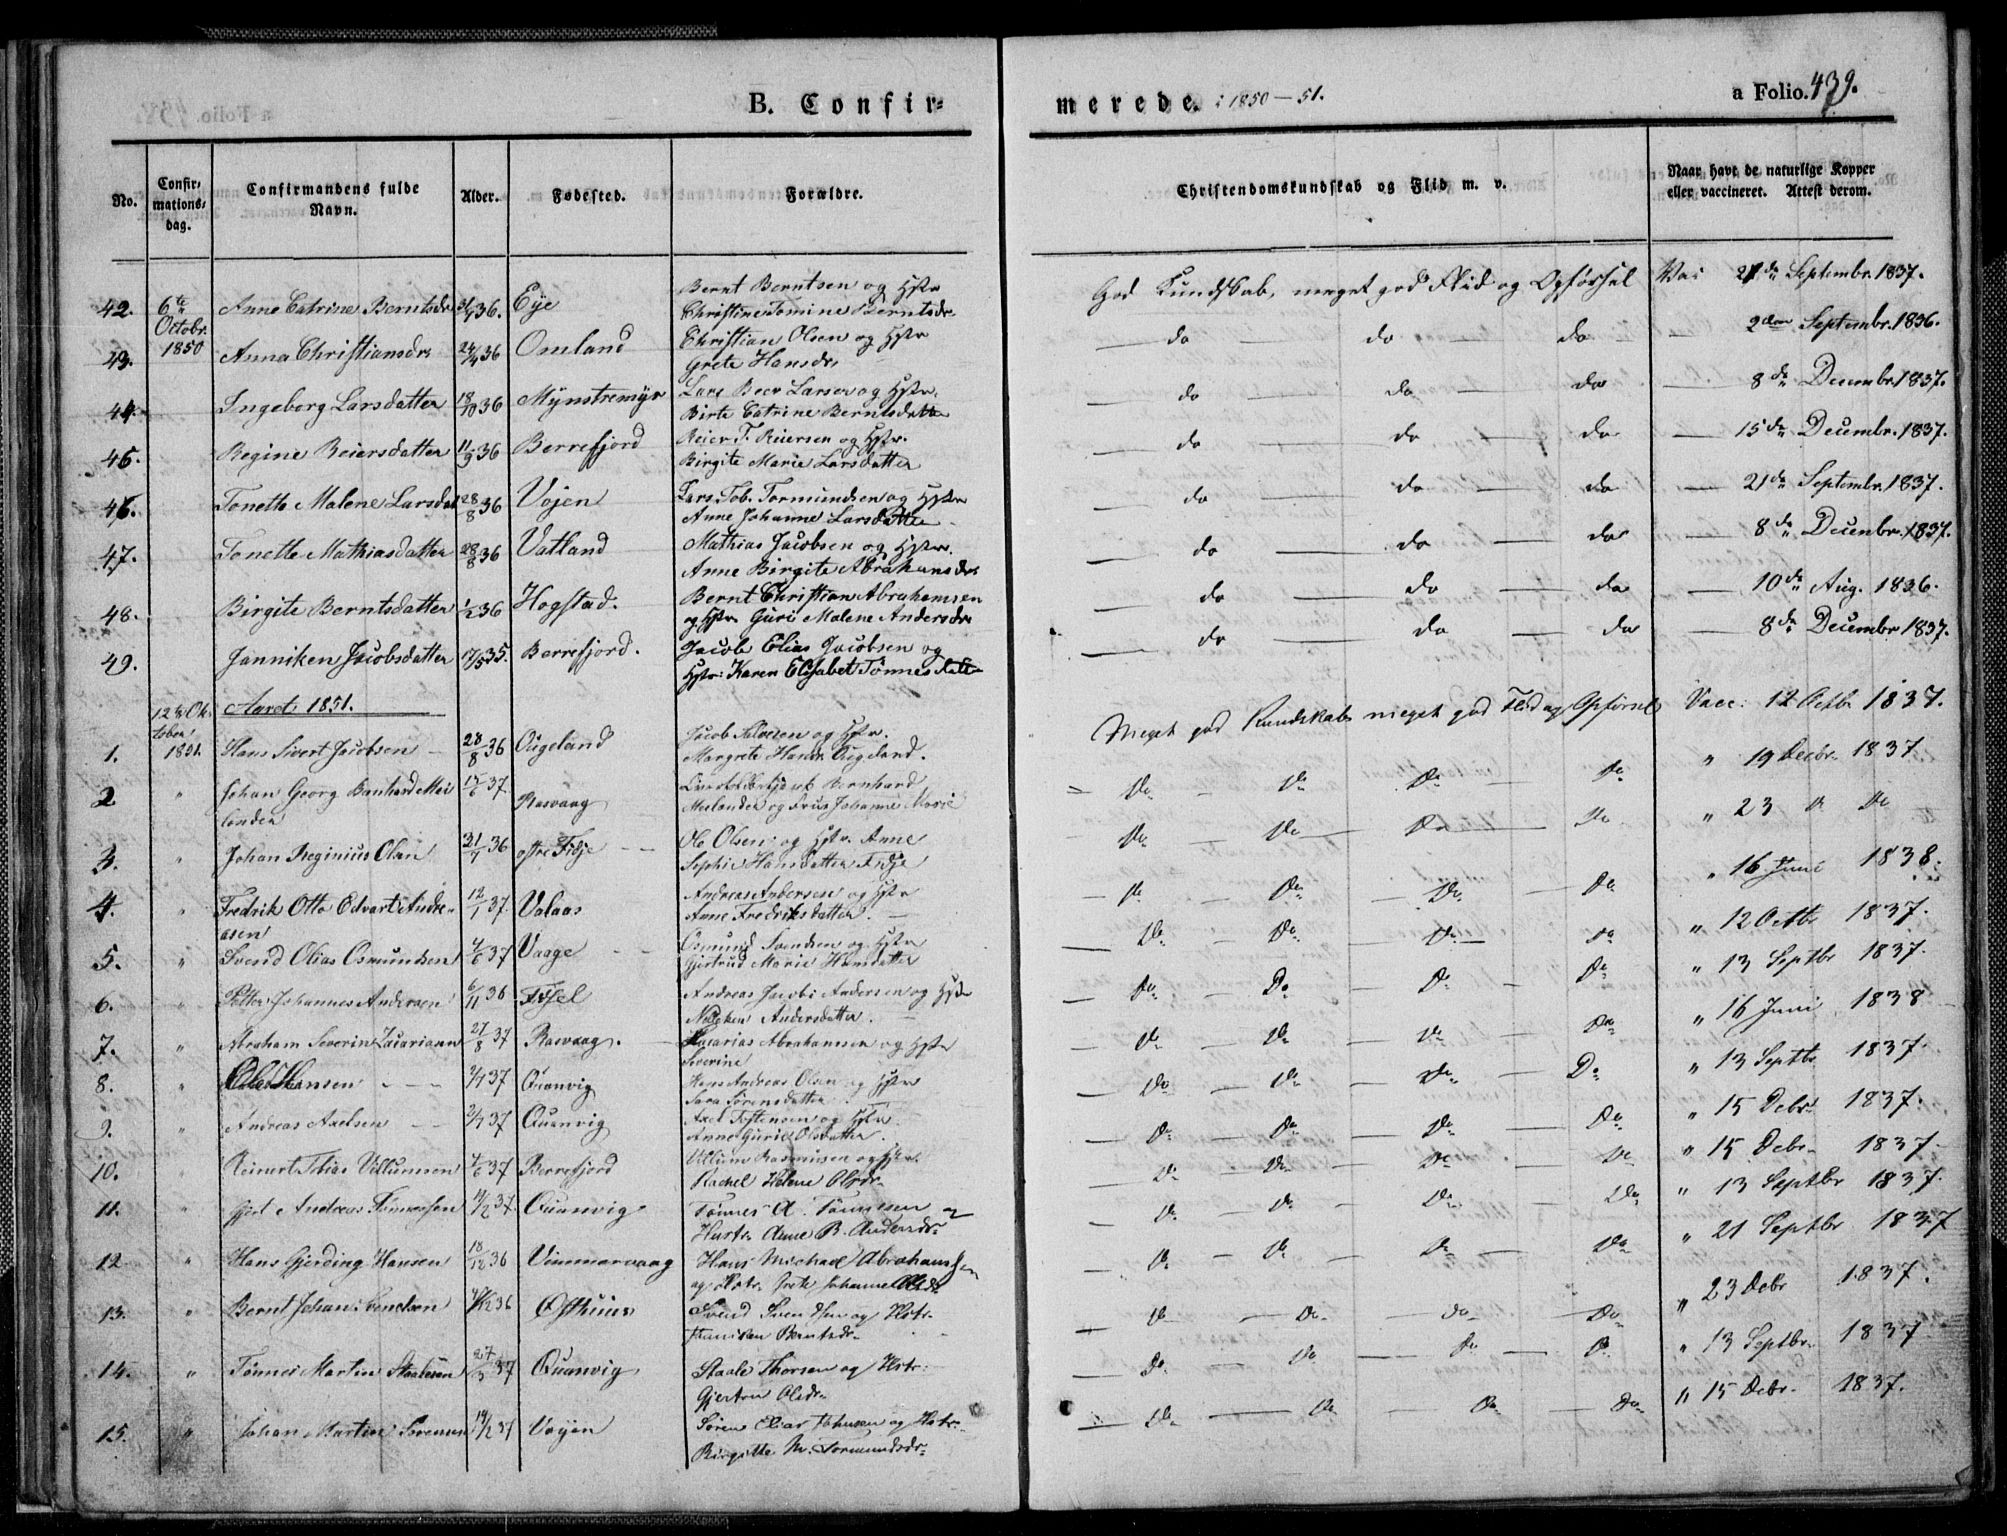 B. Confir=
merede. i 1850-51.
a Folio. 439.
No.
Confir=
mations=
dag.
Confirmandens fulde
Navn.
Alder.
Fødested.
Forældre.
Christendomskundskab og Flid m. v.
Naar havt de naturlige Kopper
eller vaccineret. Attest derom.
42. 6te Anne Catrine Berntsdr 36. Eye Bernt Berntsen og Hstr God Kundskab, meget god Flid og Opførsel Vac 21de Septembr. 1837.
Octobr. Christine Tomine Berntsdr
43. 1850 Anna Christiansdr 24/4 36 Omland Christian Olsen og Hstr do do do 2den Septembr. 1836.
Grete Hansdr
44. Ingeborg Larsdatter 18/10 36 Mynstremyr Lars Beer Larsen og Hstr. do do do 8de Decembr. 1837.
Birte Catrine Berntsdatter
45. Regine Reiersdatter 11/9 36 Berrefjord Reier T. Reiersen og Hstr. do do do 15de Decembr. 1837.
Birgite Marie Larsdatter
46. Tonette Malene Larsdat 28/8 36 Vojen Lars Tob. Tormundsen og Hstr do do do 21de Septembr. 1837.
Anne Johanne Larsdatter
47. Tonette Mathiasdatter 28/8 36 Vatland Mathias Jacobsen og Hstr. do do do 8de Decembr. 1837.
Anne Birgite Abrahamsdr
48. Birgite Berntsdatter 1/2 36 Hogstad. Bernt Christian Abrahamsen do do do 10de Aug. 1836.
og Hstr. Guri Malene Andersdr
49. Janniken Jacobsdatter 17/5 35. Berrefjord. Jacob Elias Jacobsen og do do do 8de Decembr 1837.
Hstr: Karen Elisabet Tønnesdatt
Aaret 1851.
12te Ok
tober
1. 1851. Hans Sivert Jacobsen 28/8 36 Ougeland Jacob Salvesen og Hstr. Meget god Kundskab meget god Flid og Opførsel Vacc. 12 Octbr 1837.
Margrete Hansdr Ougeland.
2 " Johan Georg Banhard Mei 15/6 37 Rasvaag Bernhard Do Do Do Do " 19 Decbr 1837
lænder Meilænder og Frue Johanne Marie
3. " Johan Reginius Olsen 21/7 36 østre Fidje Ole Olsen og Hstr. Anne Do Do Do Do " 23 Do Do
Sophie Hansdatter Fidje
4. " Fredrik Otto Edvart Andre= 12/1 37. Valaas Andreas Andersen og Hstr Do Do Do Do " 16 Juni 1838.
asen Anne Fredriksdatter.
5. " Svend Olias Osmundsen 4/6 37 Vaage Osmund Svendsen og Hstr Do Do Do Do " 12 Octbr 1837.
Gjertrud Marie Hansdatter
6. " Petter Johannes Andersen 6/11 36 Fisel Andreas Jacobs Andersen og Hstr Do Do Do Do " 13 Septbr 1837.
Andersdatter.
7. " Abraham Severin Zacariasen 27/8 37 Rasvaag. Zacarias Abrahamsen og Hstr Do Do Do Do " 16 Juni 1838
Severine
8. " Ole Hansen 37 Quanvig Hans Andreas Olsen og Hstr Do Do Do Do " 13 Septbr 1837.
Sara Sørensdatter
9. " Andreas Axelsen 2/7 37 Quanvig Axel Testensen og Hstr. Do Do Do Do " 15 Debr 1837.
Anne Gurie Olsdatter.
10. " Reinert Tobias Villumsen 4/6 37 Berrefjord Villum Rasmusen og Hstr. Do Do Do Do " 15 Debr 1837.
Rachel Helene Olsdr.
11. " Gjert Andreas Tønnessen 14/2 37. Quanvig Tønnes A. Tønnessen og Do Do Do Do " 13 Septbr 1837.
Hustr. Anne B. Andersdr
12 " Hans Gjerding Hansen 18/12 36 Vinnarvaag Hans Michael Abrahamsen Do Do Do Do " 21 Septbr 1837
og Hstr. Grete Johanne Olsdr
13. " Bernt Johan Svendsen 12 36 Osthuus Svend Svendsen og Hstr. Do Do Do Do " 23 Debr 1837.
Janniken Berntsdr.
14. " Tønnes Martin Staalesen 27/3 37 Quanvig Staale Thorsen og Hstr. Do Do Do Do " 13 Septbr 1837
Gjertru Olsdr.
15. " Johan Martin Sørensen 14/2 37 Vojen Søren Elias Johnsen og Hstr. Do Do Do Do " 15 Debr. 1837.
Birgitte M. Tormundsdr.